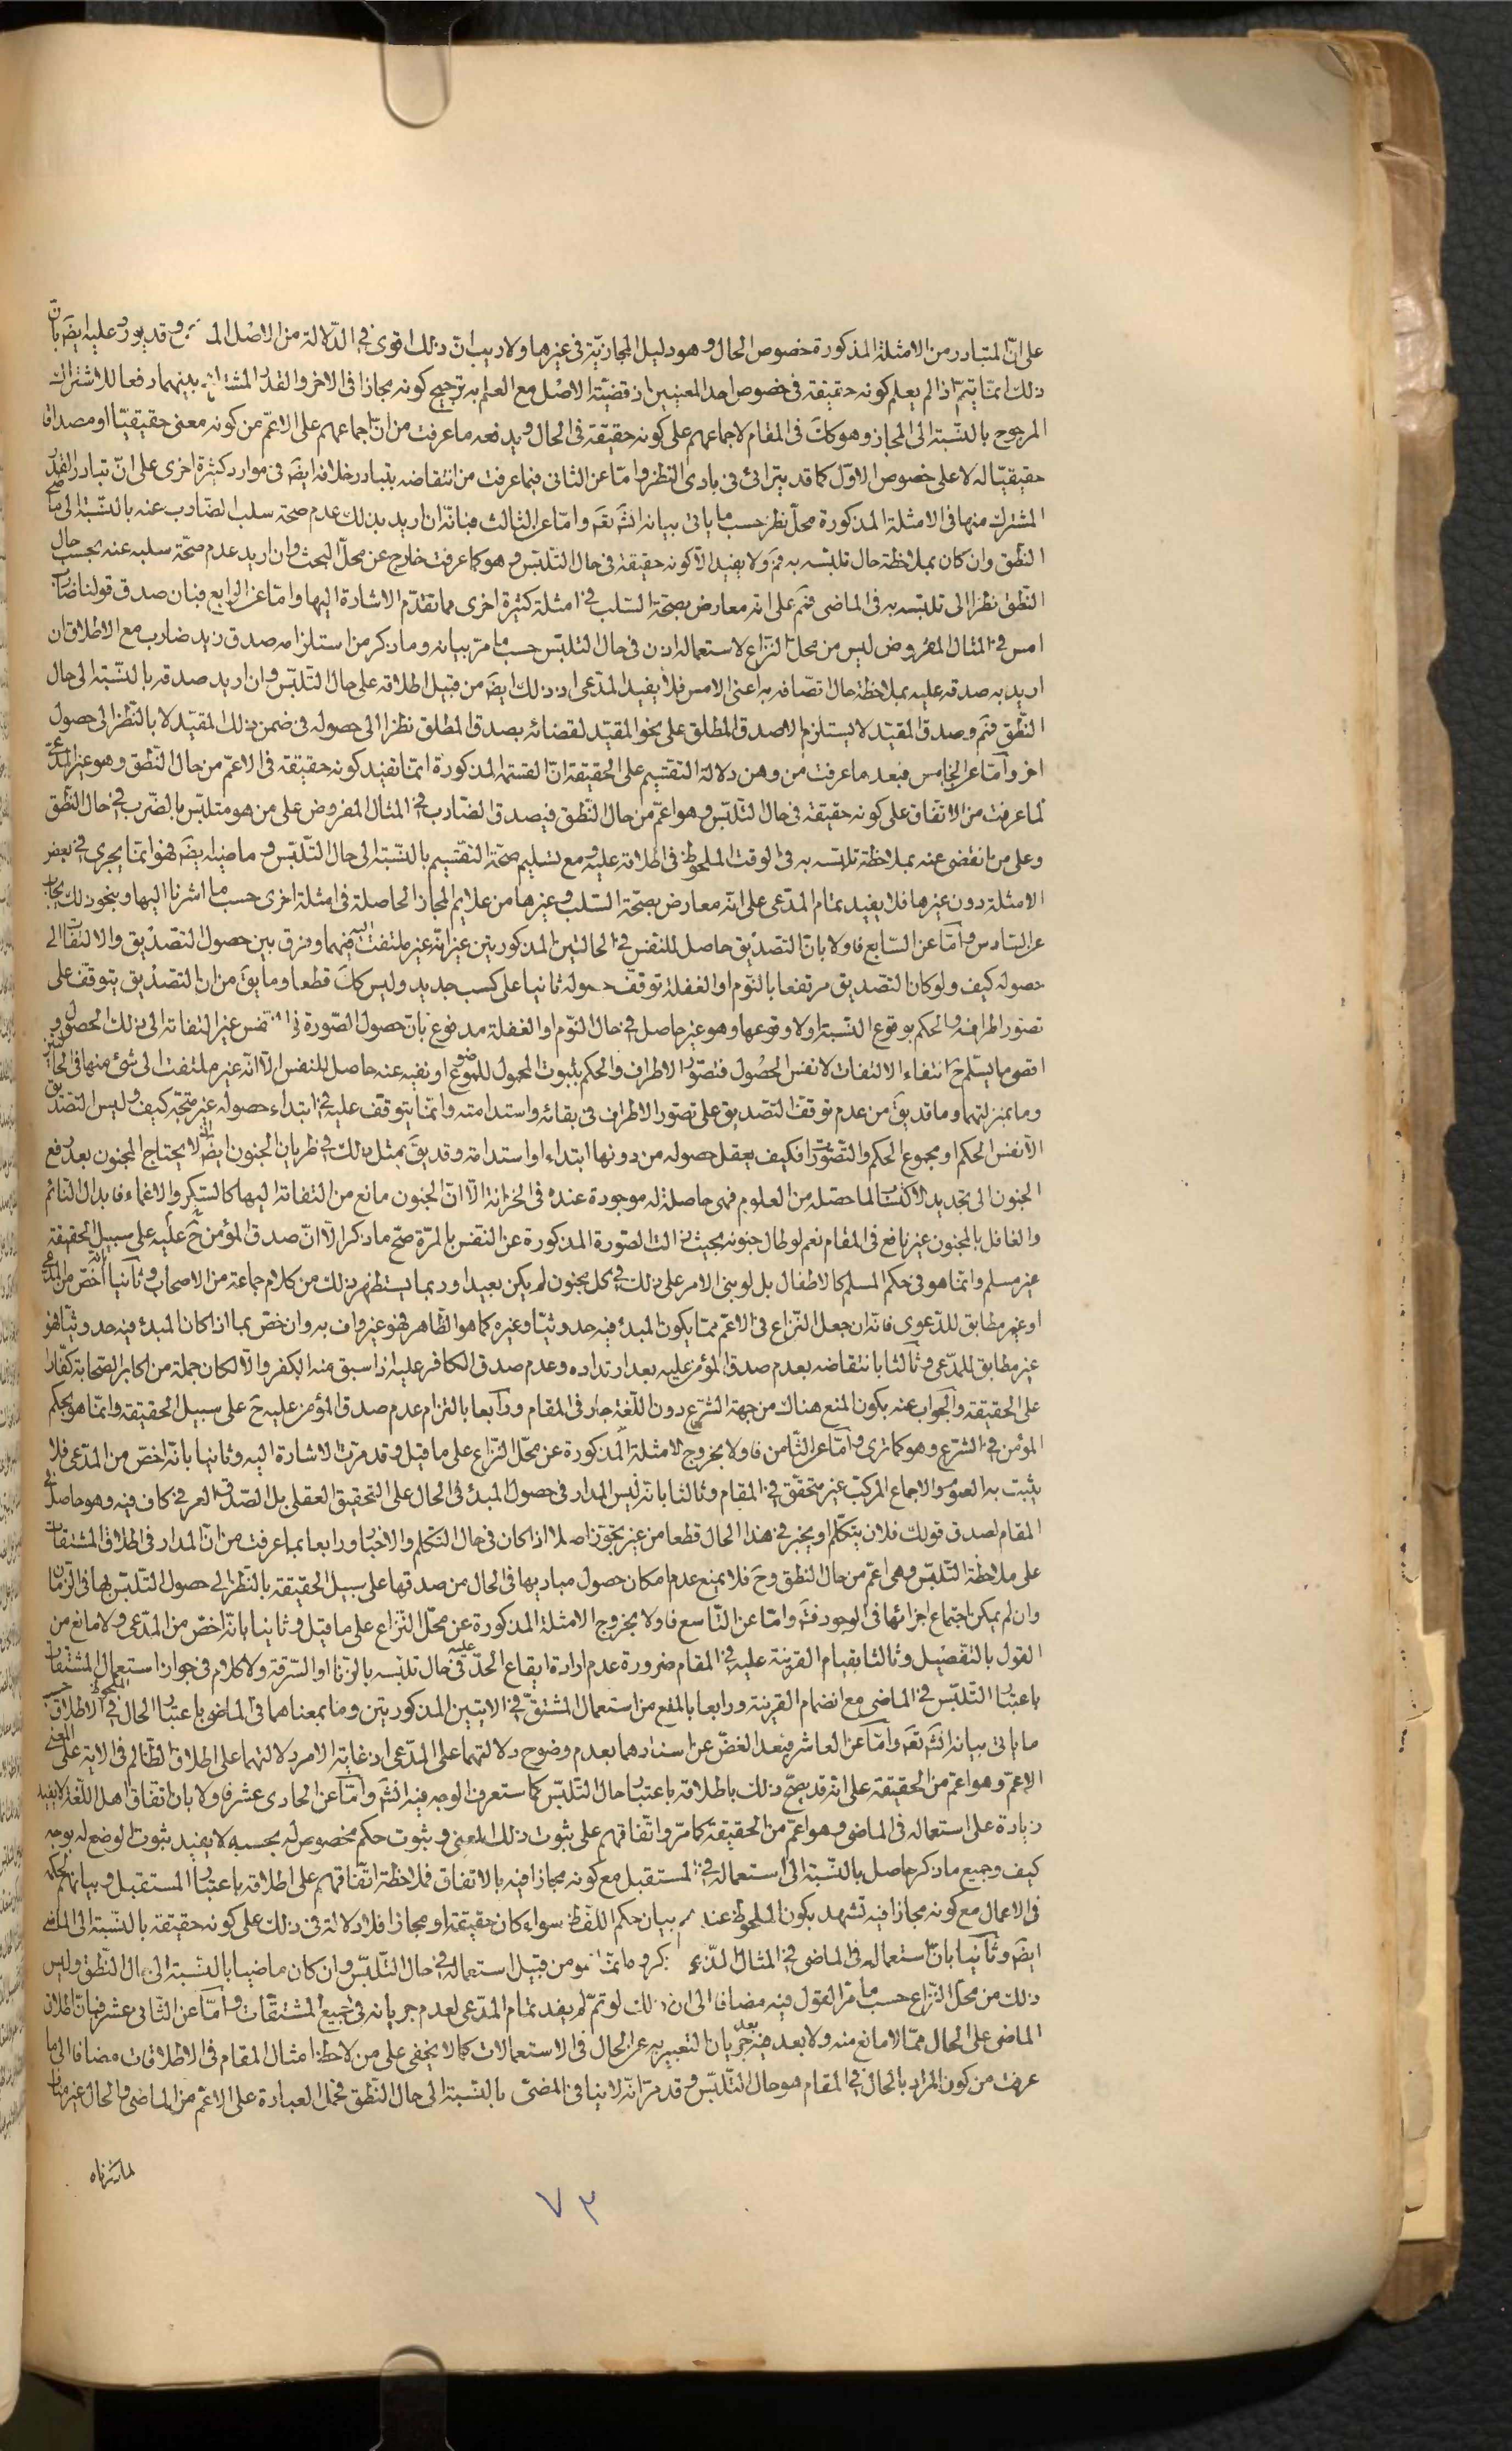 على انّ المتبادر من الامثلة المذكورة خصوص الحال وهو دليل المجازيّة فى غيرها ولا ريب انّ ذلك اقوى فى الدّلالة من الاصل وقد يورد عليه ايضَ بانّ
ذلك انّما يتمّ اذا لم يعلم كونه حقيقة فى خصوص احد المعنيين اذ قضيّة الاصل مع العلم به ترجيح كونه مجازا فى الاخر والقدر المشترك بينهما دفعا للاشتراك
المرجوح بالنّسبة الى المجاز وهو ككَ فى المقام لاجماعهم على كونه حقيقة فى الحال ويدفعه ما عرفت من انّ اجماعهم على الاعمّ من كونه معنى حقيقيّا او مصداقا
حقيقيّا له لا على خصوص الاوّل كما قد يترائى فى بادى النّظر وامّا عن الثانى فبما عرفت من انتقاضه بتبادر خلافه ايضَ فى موارد كثيرة اخرى على انّ تبادر القدر
المشترك منها فى الامثلة المذكورة محلّ نظر حسب ما ياتى بيانه انشَ تعَ وامّا عن الثالث فبانّه ان اريد بذلك عدم صحّة سلب الضّارب عنه بالنّسبة الى حال
النّطق وان كان بملاحظة حال تلبّسه به فمَ ولا يفيد الّا كونه حقيقة فى حال التّلبّس وهو كما عرفت خارج عن محلّ البحث وان اريد عدم صحّة سلبه عنه بحسب حال
النّطق نظرا الى تلبّسه به فى الماضى فمَ على انّه معارض بصحّة السّلب فى امثلة كثيرة اخرى مما تقدّم الاشارة اليها وامّا عن الرّابع فبان صدق قولنا ضارب
امس فى المثال المفروض ليس من محلّ النّزاع لاستعماله اذن فى حال التلبّس حسب ما مرّ بيانه وما ذكر من استلزامه صدق زيد ضارب مع الاطلاق ان
اريد به صدقه عليه بملاحظة حال اتّصافه به اعنى الامس فلا يفيد المدّعى اذ ذلك ايضَ من قبيل اطلاقه على حال التّلبّس وان اريد صدقه بالنّسبة الى حال
النّطق فمَ وصدق المقيّد لا يستلزم الا صدق المطلق على نحو المقيّد لقضائه بصدق المطلق نظرا الى حصوله فى ضمن ذلك المقيّد لا بالنّظر الى حصول
اخر وامّا عن الخامس فبعد ما عرفت من وهن دلالة التقسيم على الحقيقة انّ القسمة المذكورة انّما تفيد كونه حقيقة فى الاعمّ من حال النّطق وهو غير المدّعى
لما عرفت من الاتفاق على كونه حقيقة فى حال التّلبّس وهو اعمّ من حال النّطق فيصدق الضّارب فى المثال المفروض على من هو متلبّس بالضّرب فى حال النّطق
وعلى من انقضى عنه بملاحظة تلبّسه به فى الوقت الملحوظ فى اطلاقه عليه ومع تسليم صحّة التقسيم بالنّسبة الى حال التّلبّس وما ضيه ايضَ فهو انّما يجرى فى بعض
الامثلة دون غيرها فلا يفيد تمام المدّعى على انّه معارض بصحّة السّلب وغيرها من علايم المجاز الحاصلة فى امثلة اخرى حسب ما اشرنا اليها وبنحو ذلك يجاب
عن السّادس وامّا عن السّابع فاولا بانّ التصديق حاصل للنّفس فى الحالتين المذكورتين غير انّه غير ملتفت اليه فيهما وفرق بين حصول التّصديق والالتفات الى
حصوله كيف ولو كان التّصديق مرتفعا بالنّوم او الغفلة توقّف حصوله ثانيا على كسب جديد وليس ككَ قطعا وما يقَ من انّ التّصديق يتوقّف على
تصوّر اطرافه والحكم بوقوع النّسبة او لا وقوعها وهو غير حاصل فى حال النّوم او الغفلة مدفوع بانّ حصول الصّورة فى النّفس غير التفاته الى ذلك الحصول و
اقصى ما يسلم حَ انتفاء الالتفات لا نفس الحصول فتصوّر الاطراف والحكم بثبوت المحمول للموضوع او نفيه عنه حاصل للنّفس الّا انّه غير ملتفت الى شئ منها فى الحالين
وما بمنزلتهما وما قد يقَ من عدم توقّف التّصديق على تصوّر الاطراف فى بقائه واستدامته وانّما يتوقّف عليه فى ابتداء حصوله غير متّجه كيف وليس التّصديق
الّا نفس الحكم او مجموع الحكم والتّصوّرات فكيف يعقل حصوله من دونها ابتداء او استدامة وقد يقَ بمثل ذلك فى طريان الجنون ايضَ اذ لا يحتاج المجنون بعد رفع
الجنون الى تجديد الاكتساب لما حصّله من العلوم فهى حاصلة له موجودة عنده فى الخزانة الّا انّ الجنون مانع من التفاته اليها كالسّكر والاغماء فابدال النّائم
والغافل بالمجنون غير نافع فى المقام نعم لو طال جنونه بحيث زالت الصّورة المذكورة عن النفس بالمرّة صحّ ما ذكر الّا انّ صدق المؤمن حَ عليه على سبيل الحقيقة
غير مسلم وانّما هو فى حكم المسلم كالاطفال بل لو بنى الامر على ذلك فى كل مجنون لم يكن بعيدا وربما يستظهر ذلك من كلام جماعة من الاصحاب وثانيا انّه اخصّ من المدّعى
او غير مطابق للدّعوى فانّه ان جعل النّزاع فى الاعمّ ممّا يكون المبدء فيه حدوثيّا وغيره كما هو الظّاهر فهو غير واف به وان خصّ بما اذا كان المبدء فيه حدوثيّا فهو
غير مطابق للمدّعى وثالثا بانتقاضه بعدم صدق المؤمن عليه بعد ارتداده وعدم صدق الكافر عليه اذا سبق منه الكفر والّا لكان جملة من اكابر الصّحابة كفّارا
على الحقيقة والجواب عنه بكون المنع هناك من جهة الشّرع دون اللّغة جار فى المقام ورابعا بالتزام عدم صدق المؤمن عليه حَ على سبيل الحقيقة وانّما هو بحكم
المؤمن فى الشّرع وهو كما ترى وامّا عن الثّامن فاولا بخروج الامثلة المذكورة عن محلّ النّزاع على ما قيل وقد مرّت الاشارة اليه وثانيا بانّه اخصّ من المدّعى فلا
يثبت به العموم والاجماع المركّب غير متحقّق فى المقام وثالثا بانّه ليس المدار فى حصول المبدء فى الحال على التحقيق العقلى بل الصّدق العرفى كاف فيه وهو حاصل فى
المقام لصدق قولك فلان يتكلّم او يخبر فى هذا الحال قطعا من غير تجوّز اصلا اذا كان فى حال التكلّم والاخبار ورابعا بما عرفت من انّ المدار فى اطلاق المشتقات
على ملاحظة التّلبّس وهى اعمّ من حال النطق وحَ فلا يمنع عدم امكان حصول مباديها فى الحال من صدقها على سبيل الحقيقة بالنّظر الى حصول التّلبّس بها فى الزّمان
وان لم يمكن اجتماع اجزائها فى الوجود فتَمَ وامّا عن التّاسع فاولا بخروج الامثلة المذكورة عن محلّ النّزاع على ما قيل وثانيا بانّه اخصّ من المدّعى ولا مانع من
القول بالتّفصيل وثالثا بقيام القرينة عليه فى المقام ضرورة عدم ارادة ايقاع الحدّ عليه فى حال تلبّسه بالزّنا او السّرقة ولا كلام فى جواز استعمال المشتقات
باعتبار التّلبّس فى الماضى مع انضمام القرينة ورابعا بالمنع من استعمال المشتقّ فى الايتين المذكورتين وما بمعناهما فى الماضى باعتبار الحال الملحوظ فى الاطلاق حسب
ما ياتى بيانه انشَ تعَ وامّا عن العاشر فبعد الغضّ عن اسنادهما بعدم وضوح دلالتهما على المدّعى اذ غاية الامر دلالتهما على اطلاق الظّالم فى الاية على المعنى
الاعمّ وهو اعمّ من الحقيقة على انّه قد يصحّ ذلك باطلاقه باعتبار حال التّلبّس كما ستعرف الوجه فيه انشَ وامّا عن الحادى عشر فاولا بان اتّفاق اهل اللّغة لا يفيد
زيادة على استعماله فى الماضى وهو اعمّ من الحقيقة كما مرّ واتّفاقهم على ثبوت ذلك المعنى وثبوت حكم مخصوص له بحسبه لا يفيد ثبوت الوضع له بوجه
كيف وجميع ما ذكر حاصل بالنّسبة الى استعماله فى المستقبل مع كونه مجازا فيه بالاتفاق فملاحظة اتّفاقهم على اطلاقه باعتبار المستقبل وبيانهم لحكمه
فى الاعمال مع كونه مجازا فيه تشهد بكون الملحوظ عندهم بيان حكم اللّفظ سواء كان حقيقة او مجازا فلا دلالة فى ذلك على كونه حقيقة بالنّسبة الى الماضى
ايضَ وثانيا بانّ استعماله فى الماضى فى المثال من قبيل استعماله فى حال التّلبّس وان كان ماضيا بالنّسبة الى حال النّطق وليس
ذلك من محلّ النّزاع حسب ما مرّ القول فيه مضافا الى ان ذلك لو تمّ لم يفد تمام المدّعى لعدم جريانه فى جميع المشتقّات وامّا عن الثّانى عشر فبانّ اطلاق
الماضى على الحال ممّا لا مانع منه ولا بعد فيه بعد جريان التعبير به عن الحال فى الاستعمالات كما لا يخفى على من لاحظ امثال المقام فى الاطلاقات مضافا الى ما
عرفت من كون المراد بالحال فى المقام هو حال التّلبّس وقد مرّ انّه لا ينافى المضىّ بالنّسبة الى حال النّطق فحمل العبارة على الاعمّ من الماضى والحال غير مناف
٧٣